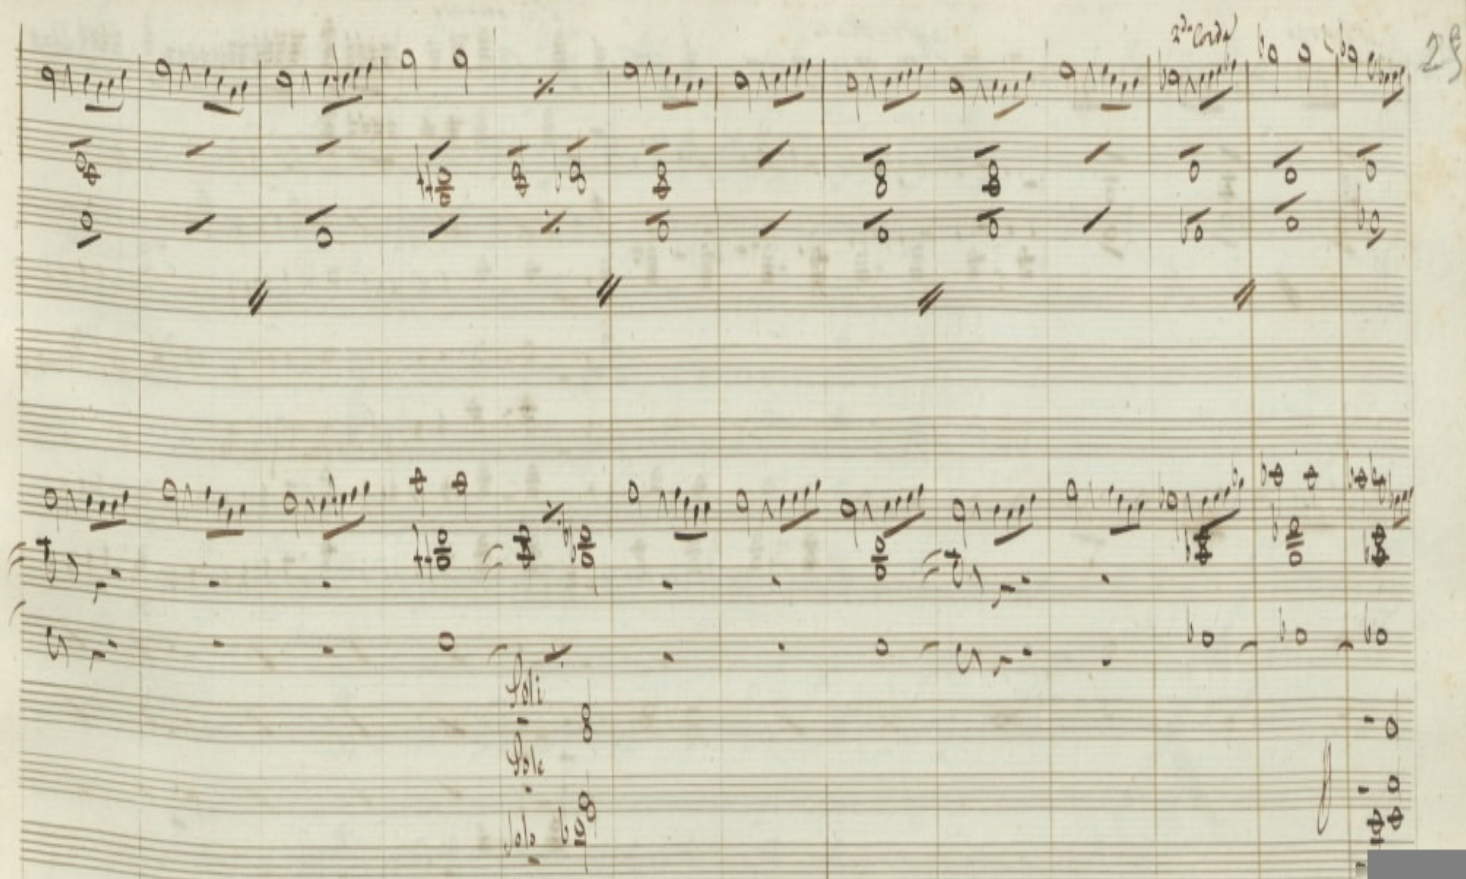 2da Corda
29
Soli
Soli
Solo